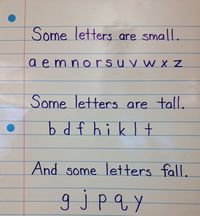 Some letters are small.
a e m n o r s u v w x z
Some letters are tall.
b d f h i k l t
And some letters fall.
g j p q y